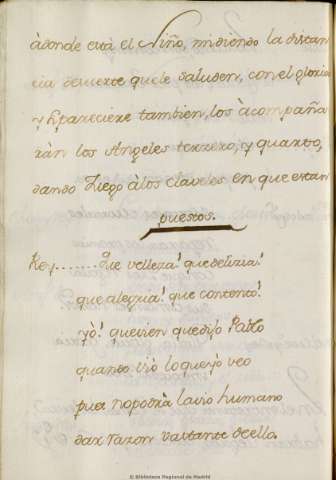 àdonde està el Niño, midiendo la distan
cia de suerte que le saluden, con el gloria
y si pareciere tambien, los àcompaña
ràn los Angeles terzero, y quarto,
dando Luego à los claveles en que estan
puestos.
Rey....... Que velleza! que delizia!
que alegria! que contento!
yò! que vien que dijo Pablo
quando viò lo que yo veo
pues no podria lavio humano
dar razon vastante de ello.
© Biblioteca Regional de Madrid